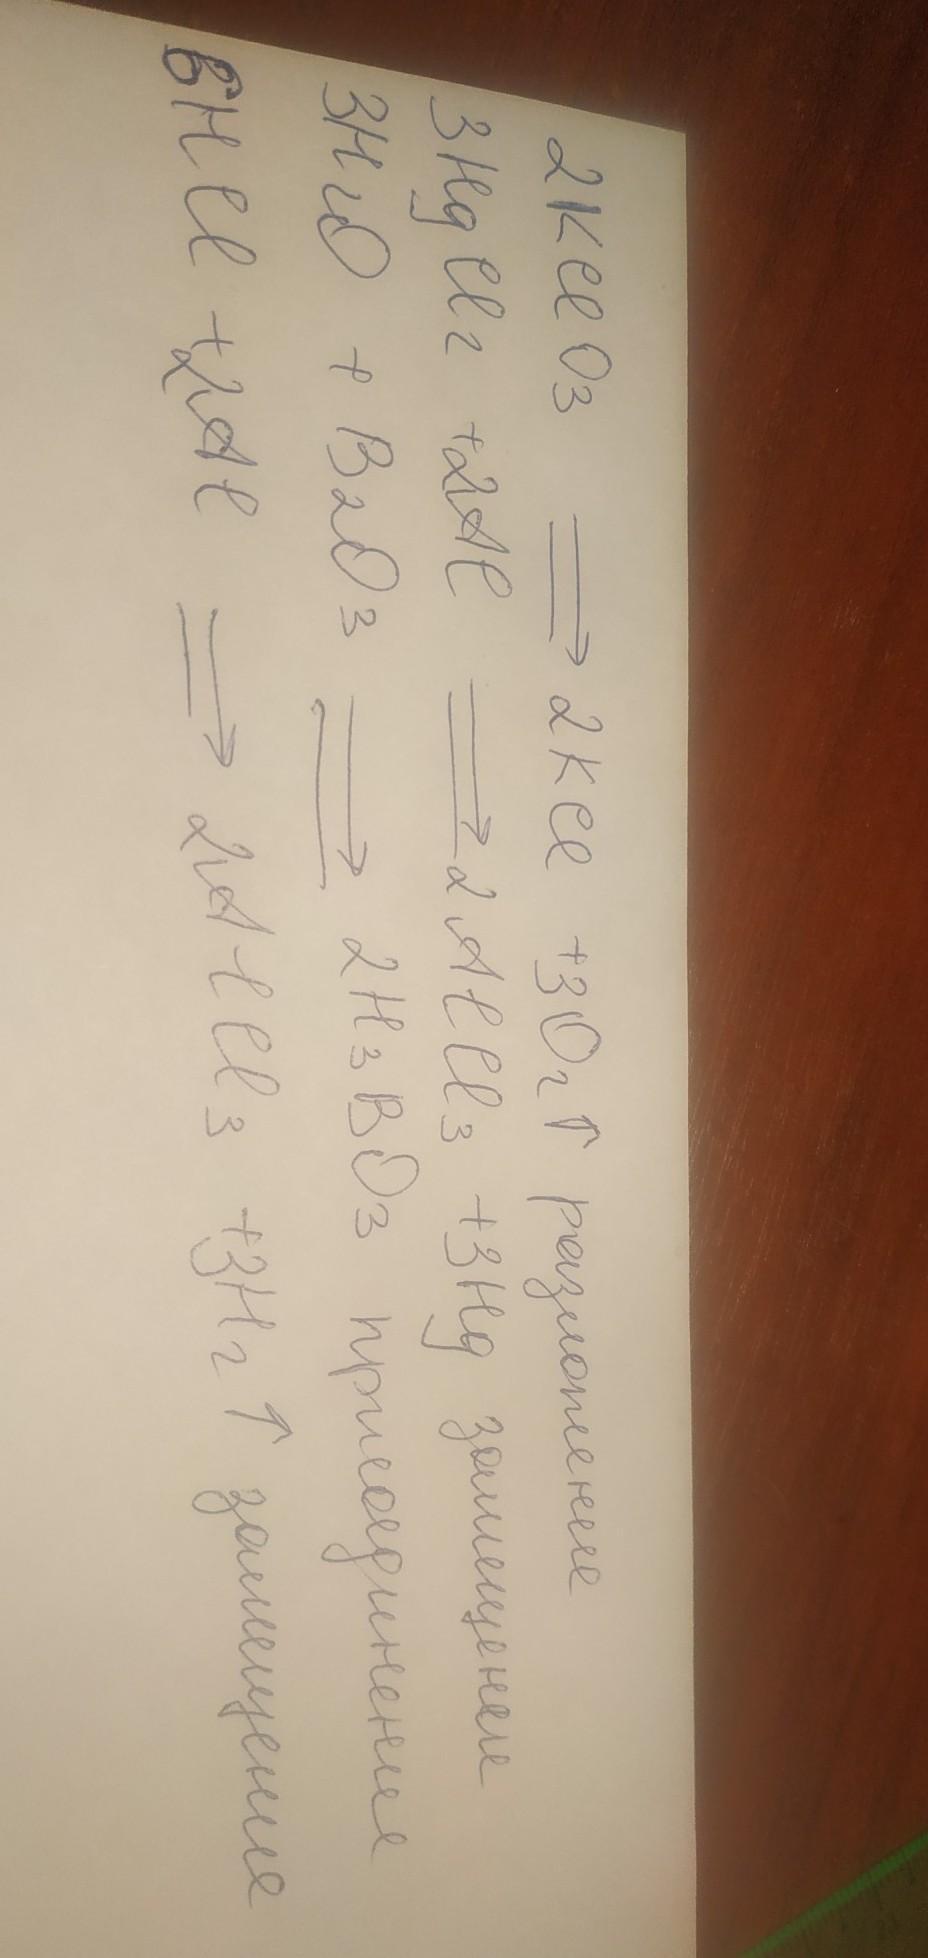 2KClO3 ⟹ 2KCl +3O2↑ разложение
3HgCl2 +2Al ⟹ 2AlCl3 +3Hg замещение
3H2O + B2O3 ⟹ 2H3BO3 присоединение
6HCl +2Al ⟹ 2AlCl3 +3H2↑ замещение